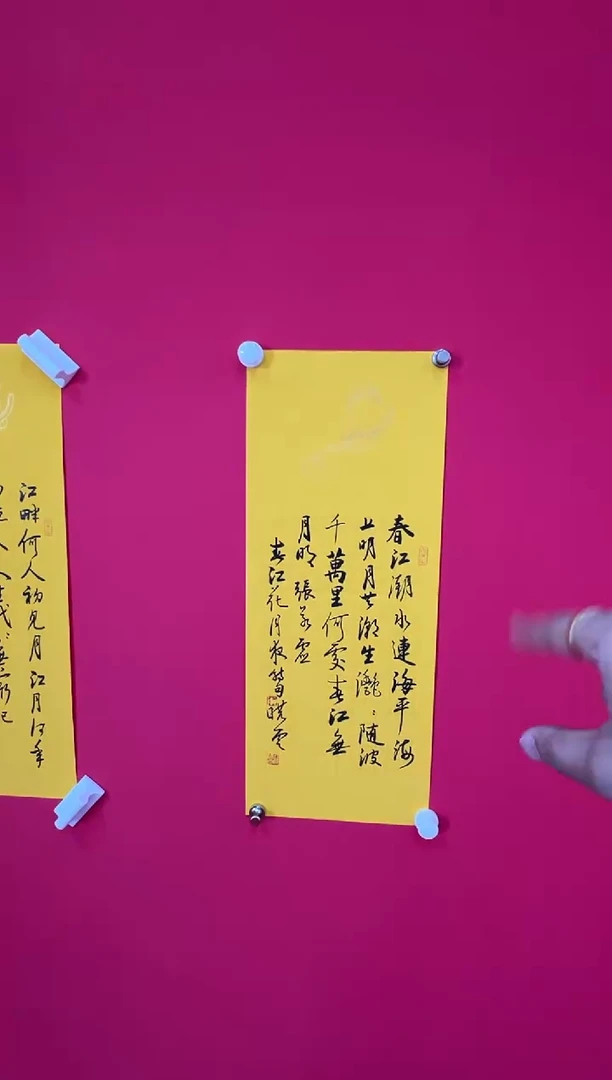 春江潮水連海平海
上明月共潮生灧〻随波
千萬里何處春江無
月明 張若虛
春江花月夜
江畔何人初見月江月何年